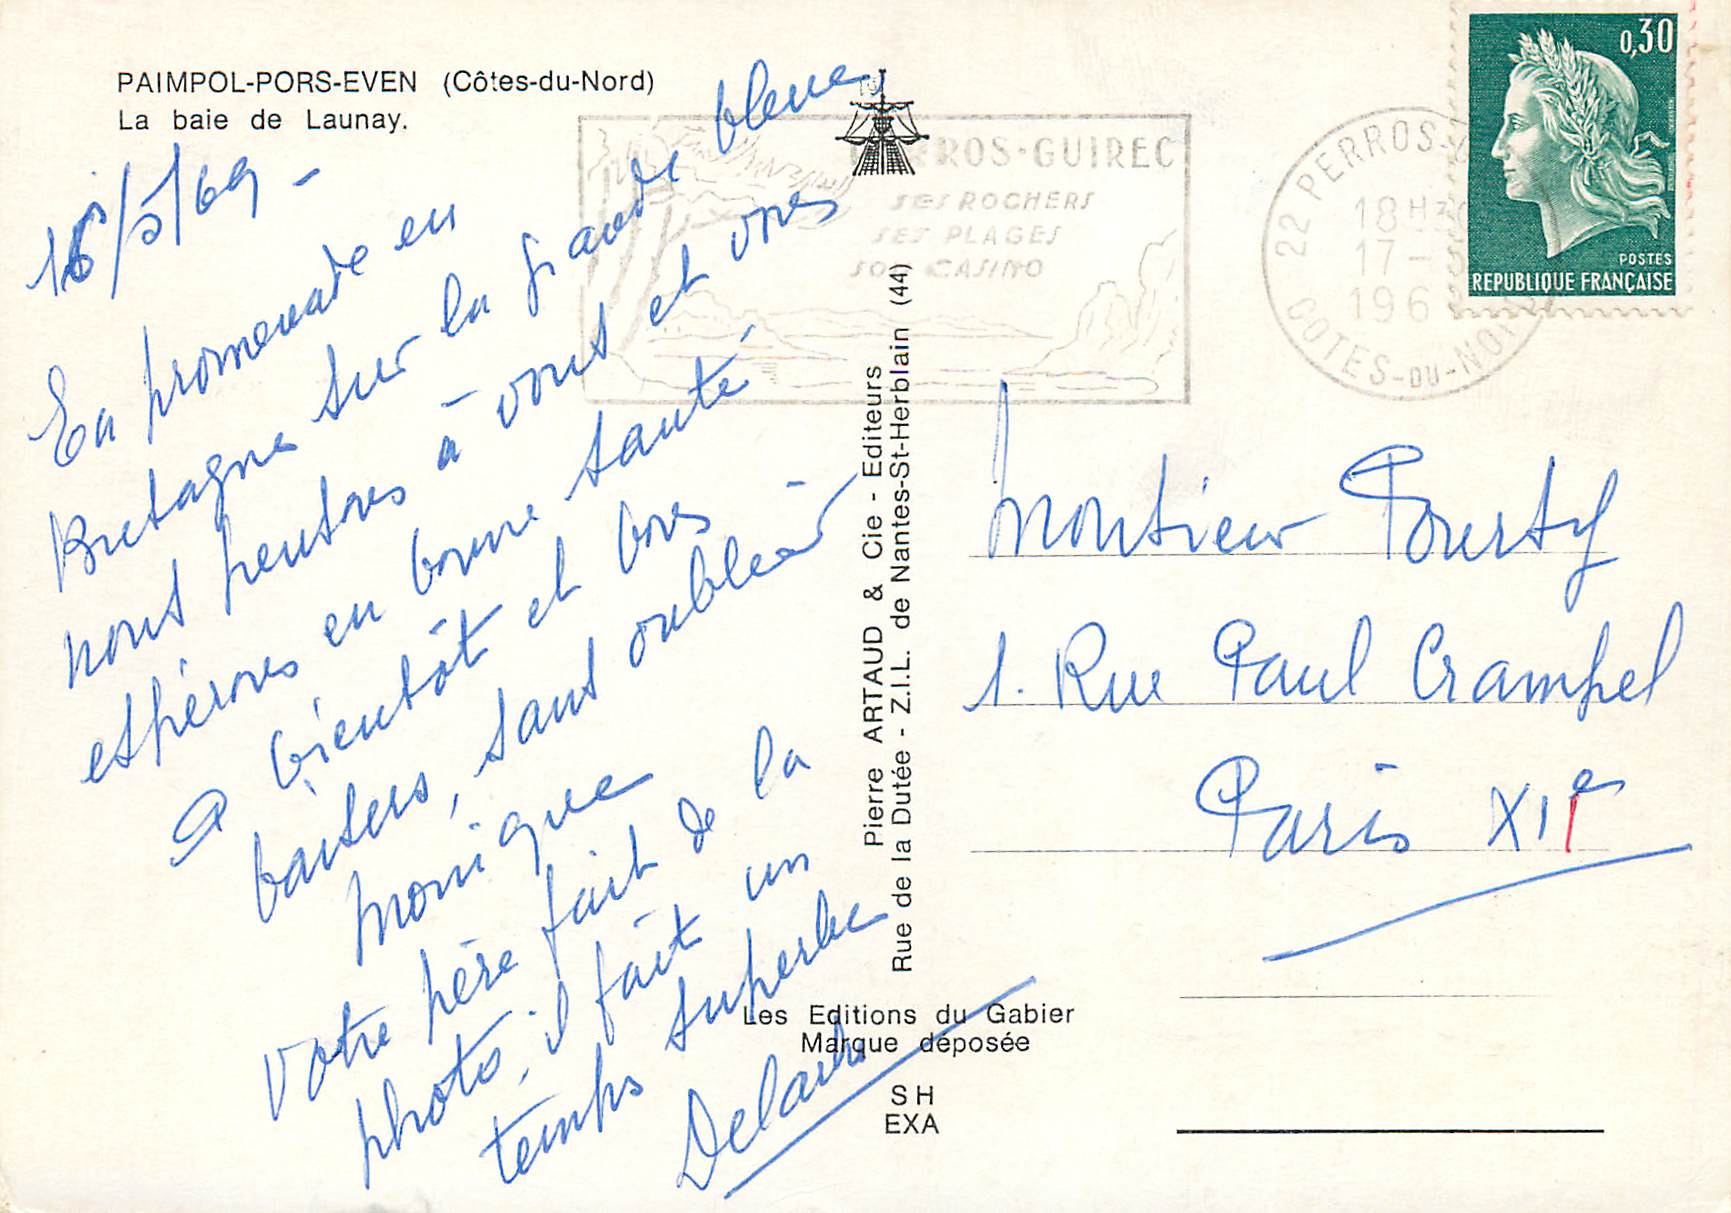 PAIMPOL-PORS-EVEN (Côtes-du-Nord)
La baie de Launay.
16/5/69 -
En promenade en
Bretagne sur la grande bleue,
nous pensons à vous et vous
espérons en bonne santé
A bientôt et bons
baisers, sans oublier
Monique
Votre père fait de la
photo, il fait un
temps superbe
PERROS-GUIREC
SES ROCHERS
SES PLAGES
SON CASINO
22 PERROS-
18 H30
17 -
196
COTES-DU-NORD
0,30
POSTES
REPUBLIQUE FRANÇAISE
Pierre ARTAUD & Cie - Editeurs
Rue de la Dutée - Z.I.L. de Nantes-St-Herblain (44)
Monsieur Poursty
1. Rue Paul Crampel
Paris XIIe
Les Editions du Gabier
Marque déposée
SH
EXA